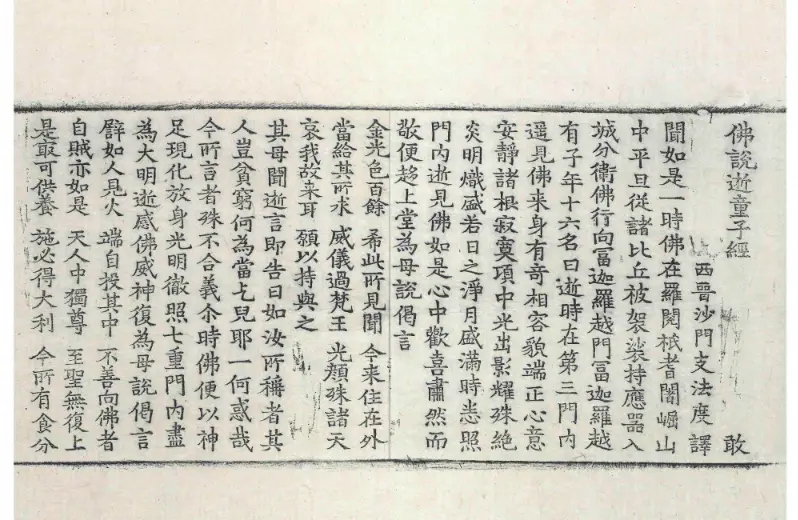 佛說逝童子經 敢
西晉沙門支法度譯
聞如是一時佛在羅閱祇耆闍崛山
中平旦從諸比丘被袈裟持應器入
城分衛佛行向冨迦羅越門冨迦羅越
有子年十六名曰逝時在第三門內
遥見佛来身有竒相容貌端正心意
安靜諸根寂寞項中光出影耀殊絶
炎明熾盛若日之淨月盛滿時悉照
門內逝見佛如是心中歡喜肅然而
敬便趍上堂為母說偈言
金光色百餘 希此所見聞 今来住在外
當給其所求 威儀過梵王 光顏殊諸天
哀我故来耳 願以持與之
其母聞逝言即告曰如汝所稱者其
人豈貧窮何為當乞兒耶一何惑哉
今所言者殊不合義尒時佛便以神
足現化放身光明徹照七重門內盡
為大明逝感佛威神復為母說偈言
譬如人見火 端自投其中 不善向佛者
自賊亦如是 天人中獨尊 至聖無復上
是冣可供養 施必得大利 今所有食分